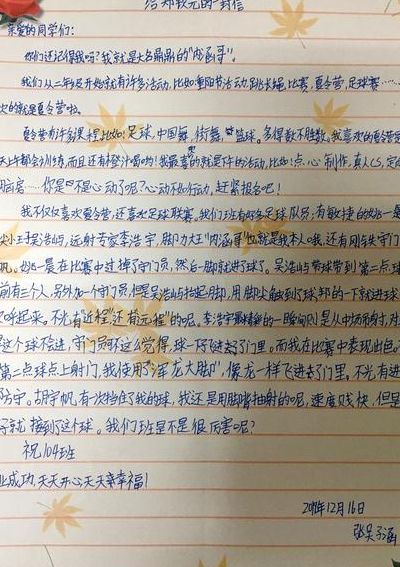 给郑钦元的一封信
亲爱的同学们：
你们还记得我吗？我就是大名鼎鼎的"内涵哥"。
我们从二年级开始就有许多活动，比如重阳节活动，跳长绳比赛，夏令营，足球赛……
次的就是夏令营啦。
夏令营有许多课程比如：足球，中国舞，街舞，篮球。多得数不胜数。我喜欢的夏令营
天上午都会训练，而且还有橙汁喝哟！我最喜欢的就是下午的活动，比如：点心制作，真人CS，定
向……你是不是心动了呢？心动不如行动，赶紧报名吧！
我不仅仅喜欢夏令营，还喜欢足球联赛。我们班有好多足球队员，有敏捷的姚一晨
尖小王子吴浩屿，远射专家李浩宇，脚力大王"内涵哥"也就是我本人哦，还有刚铁守门
帆。姚一晨在比赛中过掉了守门员，然后一脚就进球了。吴浩屿带球带到第二点球
前有三个人，另外加一个守门员，但是吴浩屿抬起脚，用脚尖触到了球，那的一下就进球
欢呼起来。不光有"近程"还有远程"的呢。李浩宇最精彩的一瞬间则是从中场吊射，对
这个球不会进，守门员不这么觉得，球一下子飞进去了门里。而我在比赛中表现出色。
第二点球点上射门，我使用了"浑龙大脚"，像龙一样飞进去了门里。不光有进
防守。胡宇帆有次挡住了我的球，我还是用脚背抽射的呢，速度贼快，但是
子就接到了这个球。我们班是不是很厉害呢？
祝104班
业成功，天天开心，天天幸福！
12月16日
张吴子涵